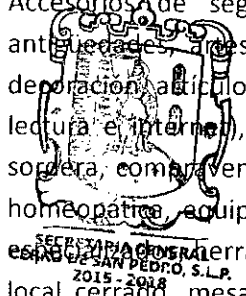 Accesorios de seg
antigüedades, artes
decoración artículo
lectura e internet),
sordera, compraven
homeopática, equip
SECRETARIA GENERAL
CERRO DE SAN PEDRO, S.L.P.
2015 - 2018
local cerrado, mesa